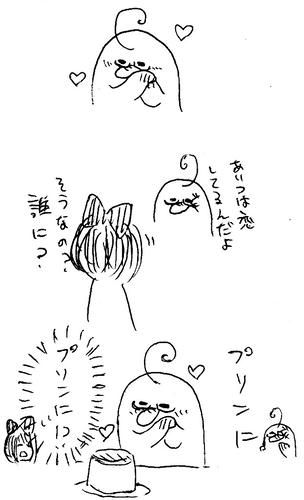 あいつは恋
してるんだよ
そうなの?
誰に?
プリンに
プリンに!?